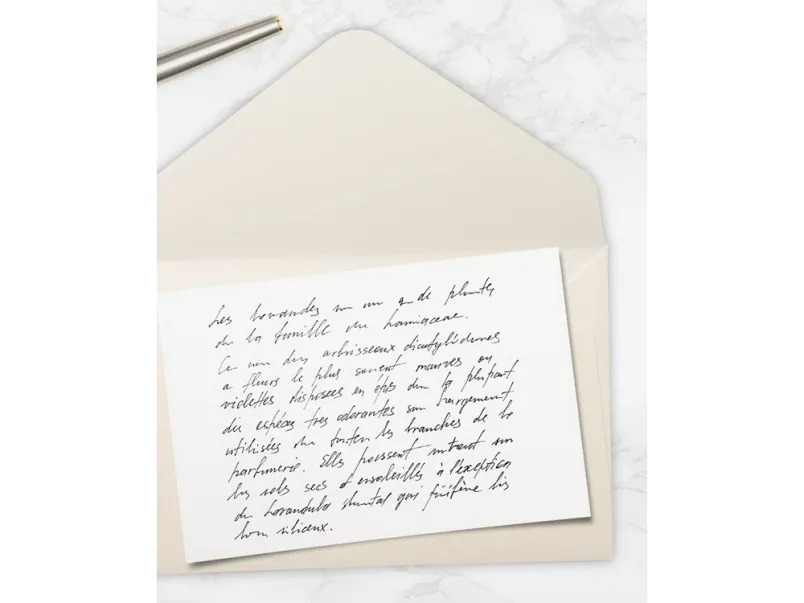 Les lavandes
de la famille du Lamiaceae.
arbrisseaux dicotylédones
a fleurs le plus souvent mauves ou
violettes disposées en épis la plupart
des espèces tres odorantes sont largement
utilisées toutes les branches de la
parfumerie. Elles poussent surtout
les sols secs et ensoleillés à l'exception
du Lavandula qui préfère les
siliceux.